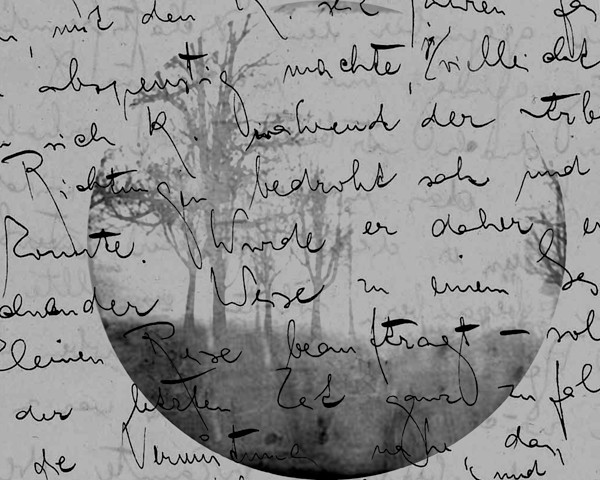 mit den K. seit Jahren
abspenstig machte,
sich K. während der
Richtungen bedroht sah und
konnte. Wurde er daher,
Weise zu einem
kleinen Reise beauftragt — sol
der letzten Zeit ganz zu fäl
die Vermutung nahe, daß
und